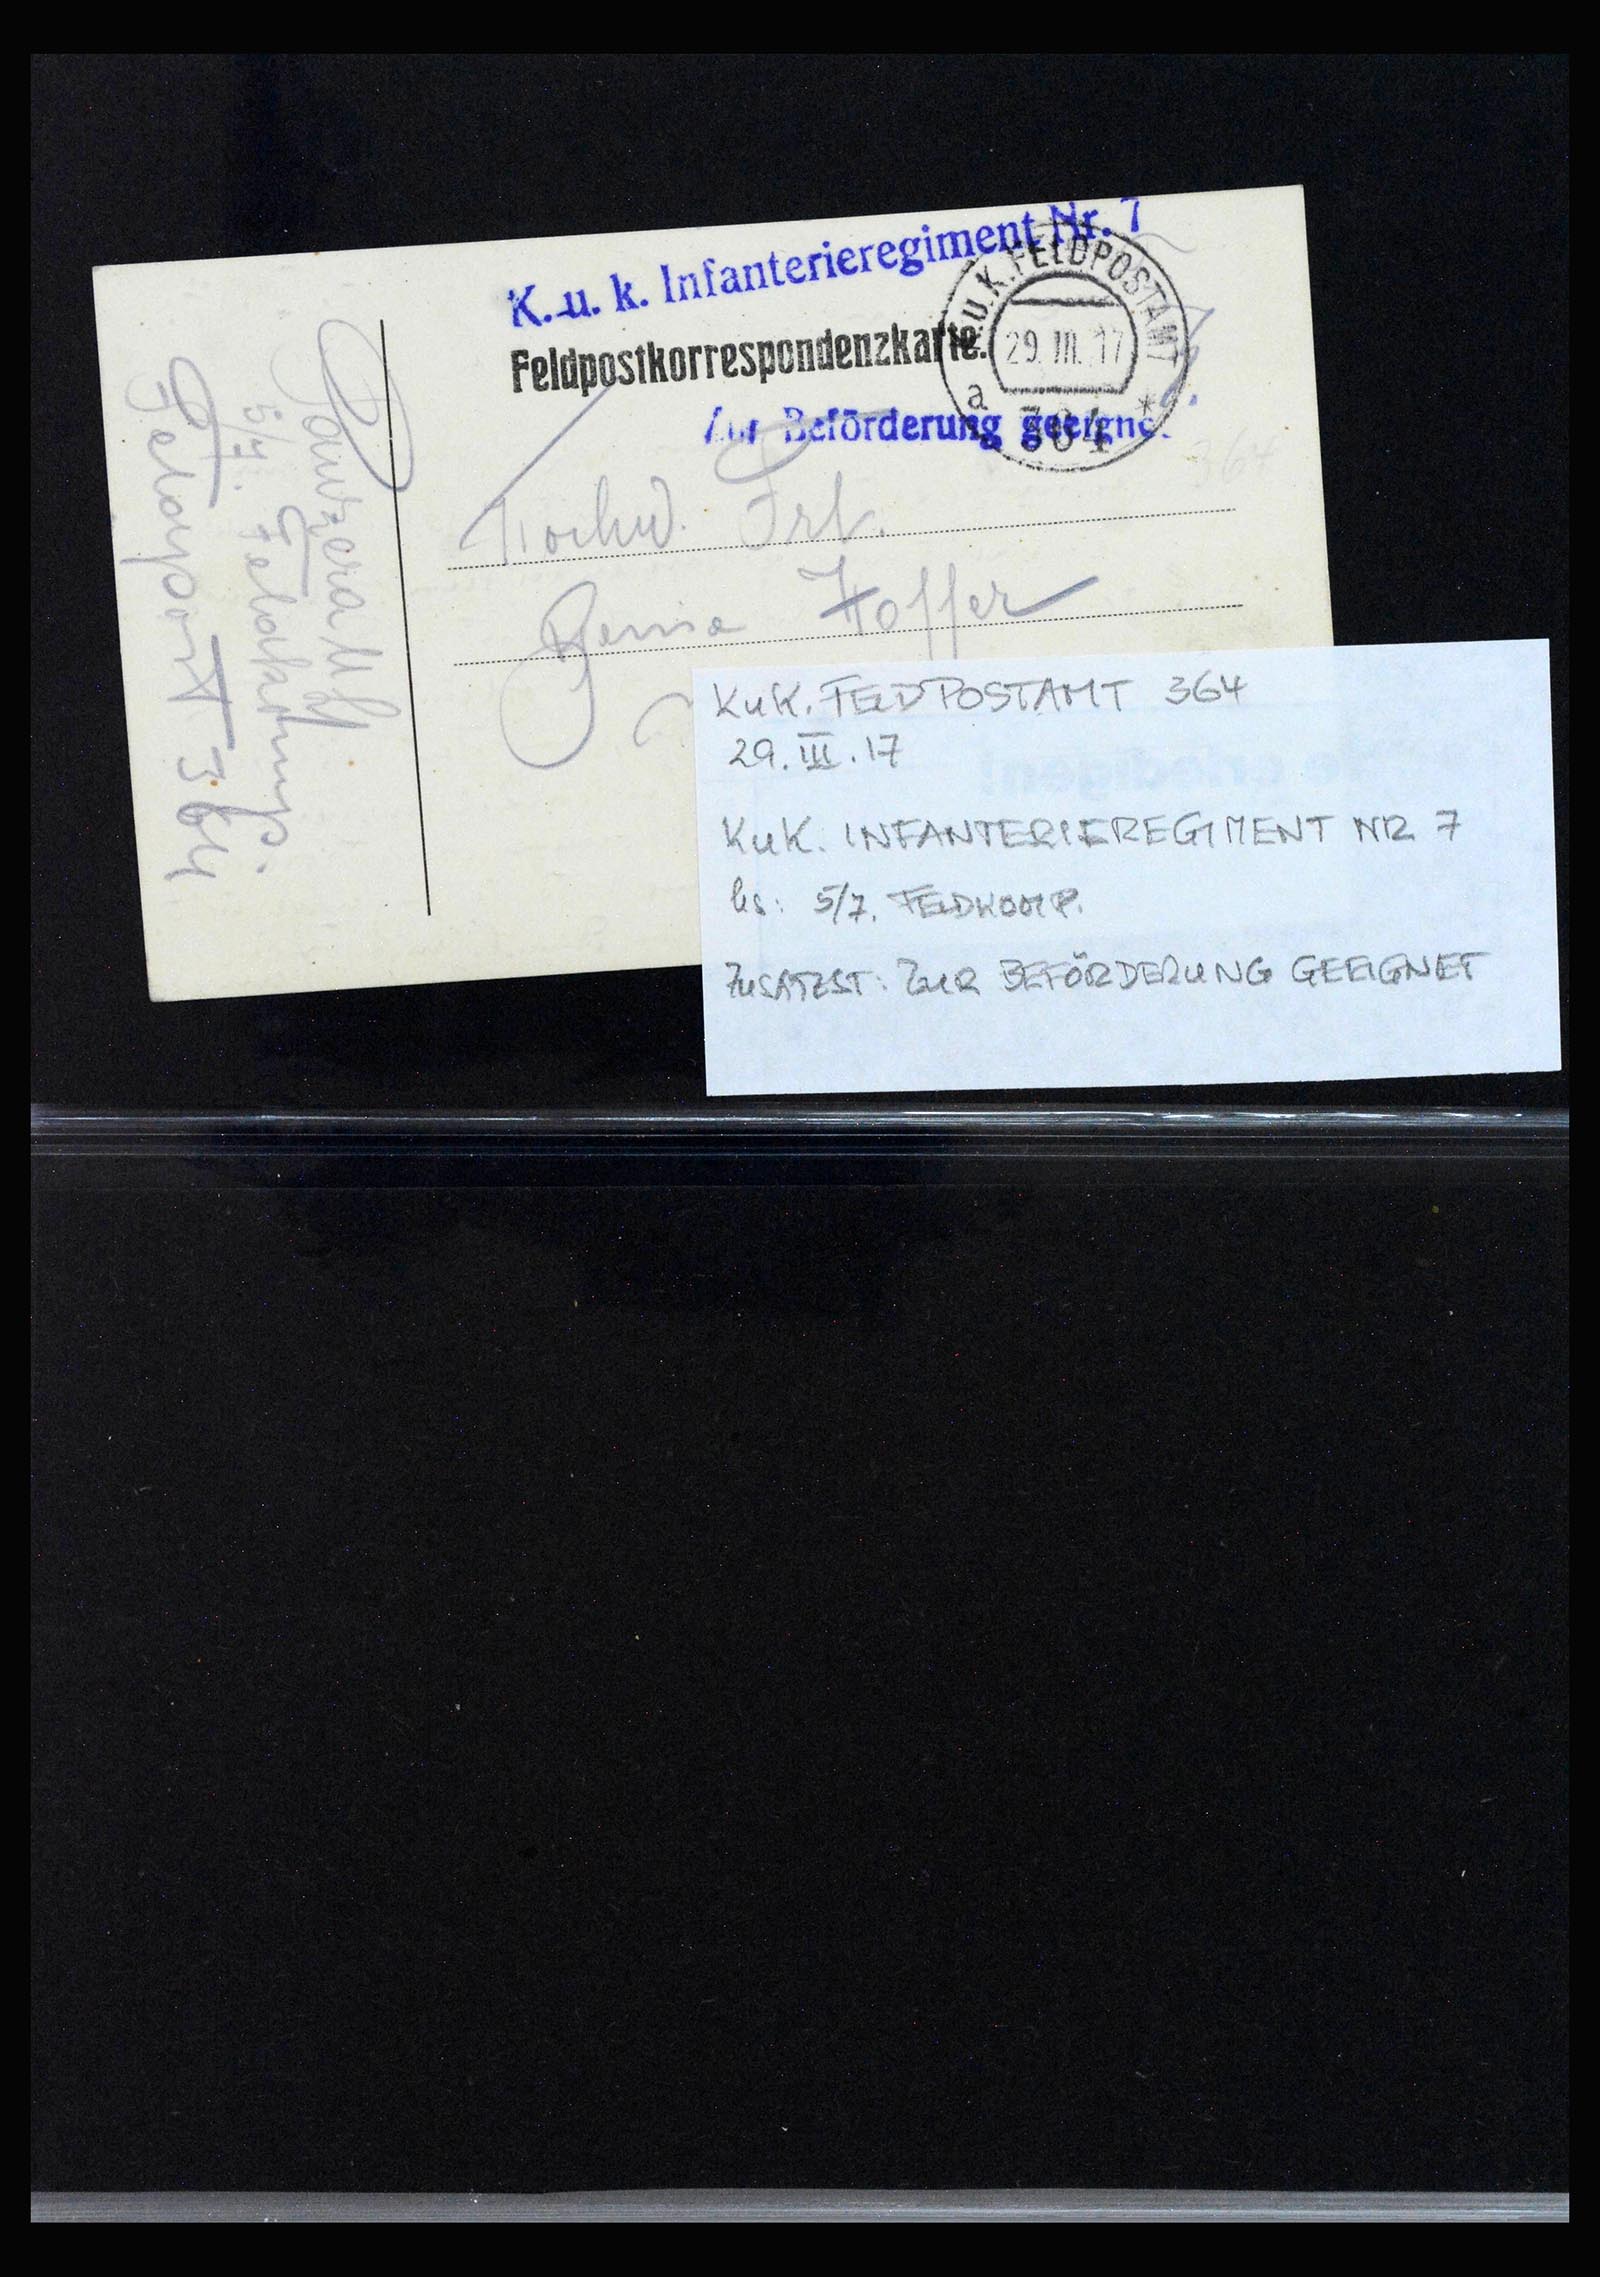 K. u. k. Infanterieregiment Nr. 7
Feldpostkorrespondenzkarte.
K.U.K. FELDPOSTAMT
29. III. 17
a 364 *
Zur Beförderung geeignet
364
Frl.
Hoffer
5/7. Feldkomp.
Feldpost 364
KuK. FELDPOSTAMT 364
29. III. 17
KuK. INFANTERIEREGIMENT NR 7
hs: 5/7. FELDKOMP.
ZUSATZST: ZUR BEFÖRDERUNG GEEIGNET